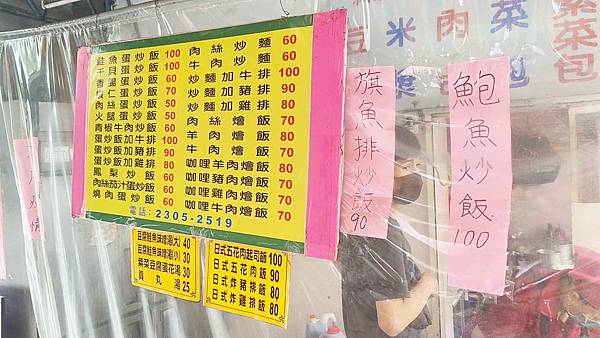 鮭魚蛋炒飯 100
干貝蛋炒飯 100
香腸蛋炒飯 60
蝦仁蛋炒飯 70
肉絲蛋炒飯 50
火腿蛋炒飯 50
青椒牛肉炒飯 60
蛋炒飯加牛排 100
蛋炒飯加豬排 90
蛋炒飯加雞排 80
鳳梨炒飯 60
肉絲茄汁蛋炒飯 60
燒肉蛋炒飯 60
肉絲炒麵 60
牛肉炒麵 60
炒麵加牛排 100
炒麵加豬排 90
炒麵加雞排 80
肉絲燴飯 70
羊肉燴飯 80
牛肉燴飯 70
咖哩羊肉燴飯 80
咖哩豬肉燴飯 70
咖哩雞肉燴飯 70
咖哩牛肉燴飯 70
電話:2305-2519
豆腐鮭魚味噌湯(大) 40
豆腐鮭魚味噌湯(小) 30
紫菜豆腐蛋花湯 30
貢丸湯 25
日式五花肉起司飯 100
日式五花肉飯 90
日式炸豬排飯 80
日式炸雞排飯 80
旗魚排炒飯 90
鮑魚炒飯 100
米
肉
菜包